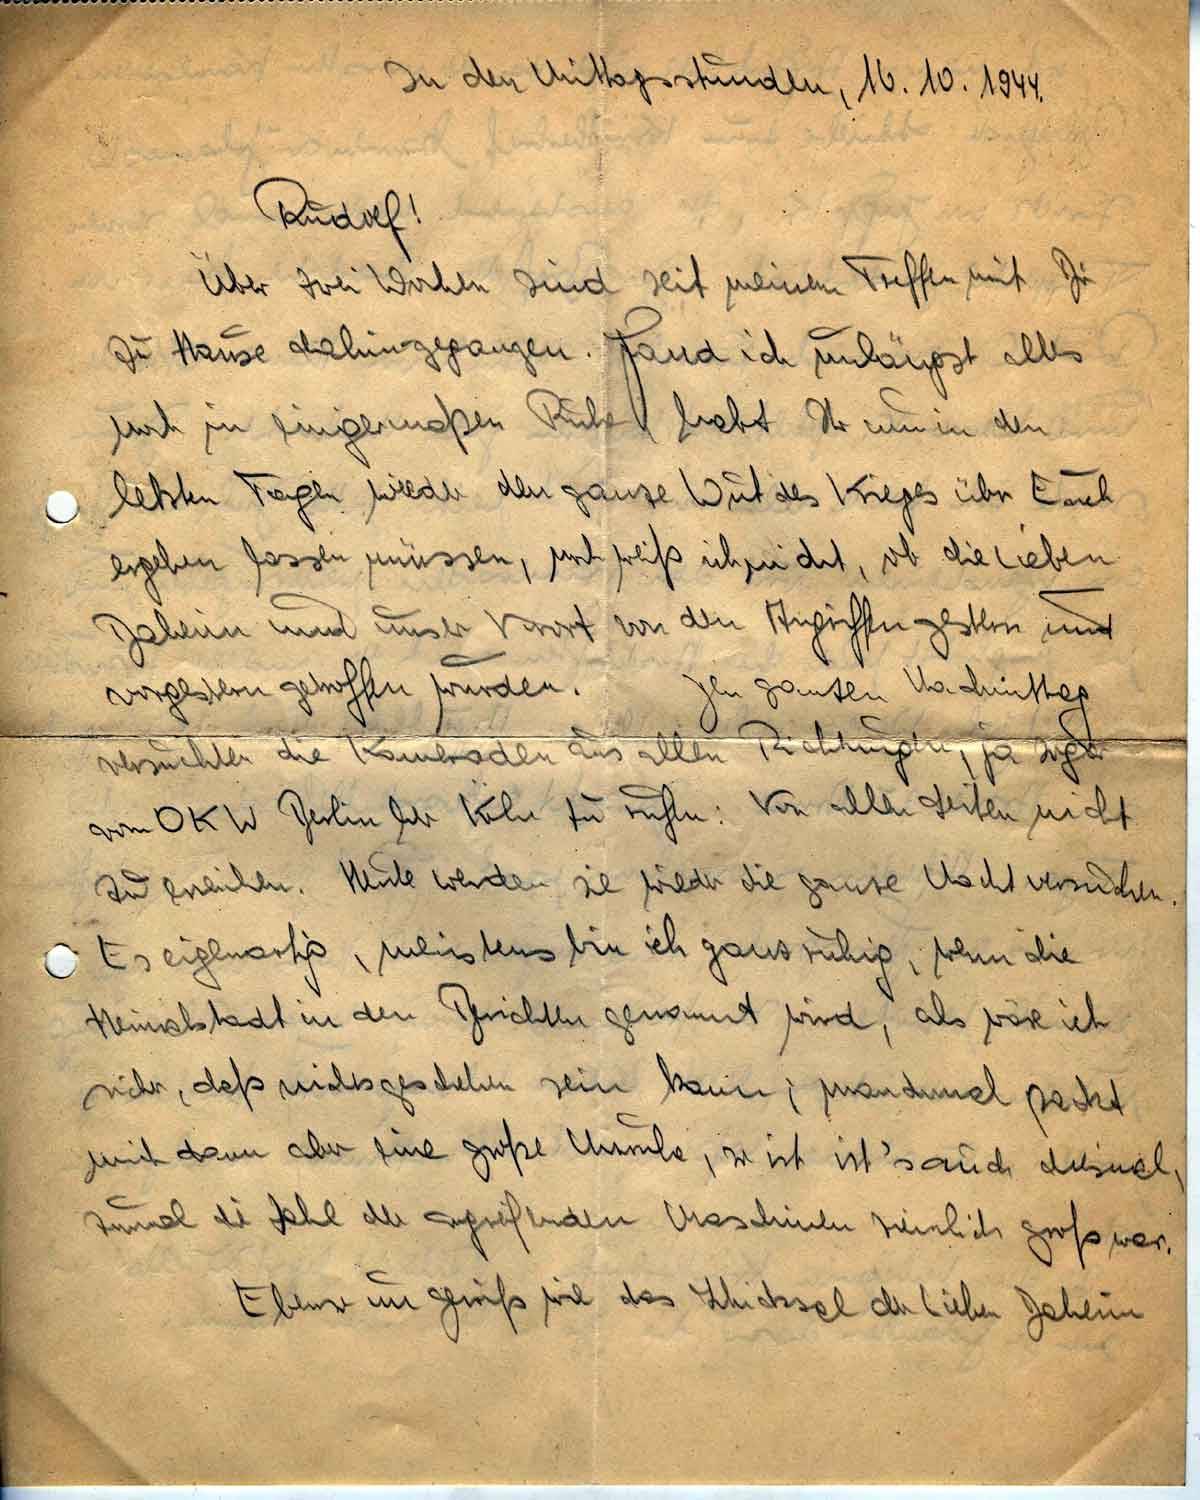 In den Mittagsstunden, 16. 10. 1944.
Rudolf!
Über zwei Wochen sind seit meinem Treffen mit Dir
zu Hause dahingegangen. Fand ich unlängst alles
noch in einigermaßen Ruhe, habt Ihr nun in den
letzten Tagen wieder den ganze Wut des Krieges über Euch
ergehen lassen müssen, noch weiß ich nicht, ob die Lieben
Daheim und unser Vorort von den Angriffen gestern und
vorgestern getroffen wurden. Den ganzen Nachmittag
versuchten die Kameraden aus allen Richtungen, ja sogar
vom OKW Berlin her Köln zu rufen: Von allen Seiten nicht
zu erreichen. Heute werden sie wieder die ganze Nacht versuchen.
Es eigenartig, meistens bin ich ganz ruhig, wenn die
Heimatstadt in den Berichten genannt wird, als wäre ich
sicher, daß nichts geschehen sein kann; manchmal packt
mich dann aber eine große Unruhe, so ist ist's auch diesmal,
zumal die Zahl der angreifenden Maschinen ziemlich groß war.
Ebenso ungewiß wie das Schicksal der Lieben Daheim